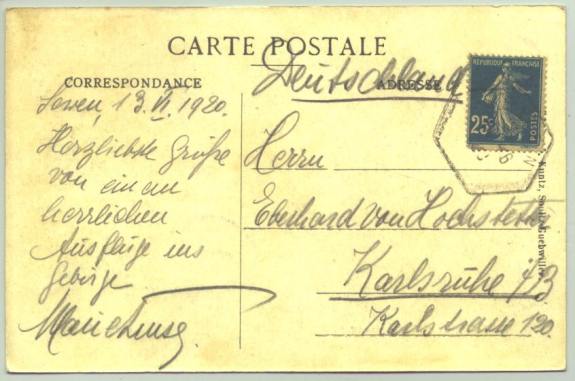 CARTE POSTALE
CORRESPONDANCE
ADRESSE
Deutschland
13. VI 1920.
Herzlichste Grüße
von einem
herrlichen
Ausfluge ins
Gebirge
Herrn
Eberhard von Hochstetter
Karlsruhe i/B
Karlstrasse 120.
REPUBLIQUE FRANÇAISE
25c
POSTES
Kuntz,